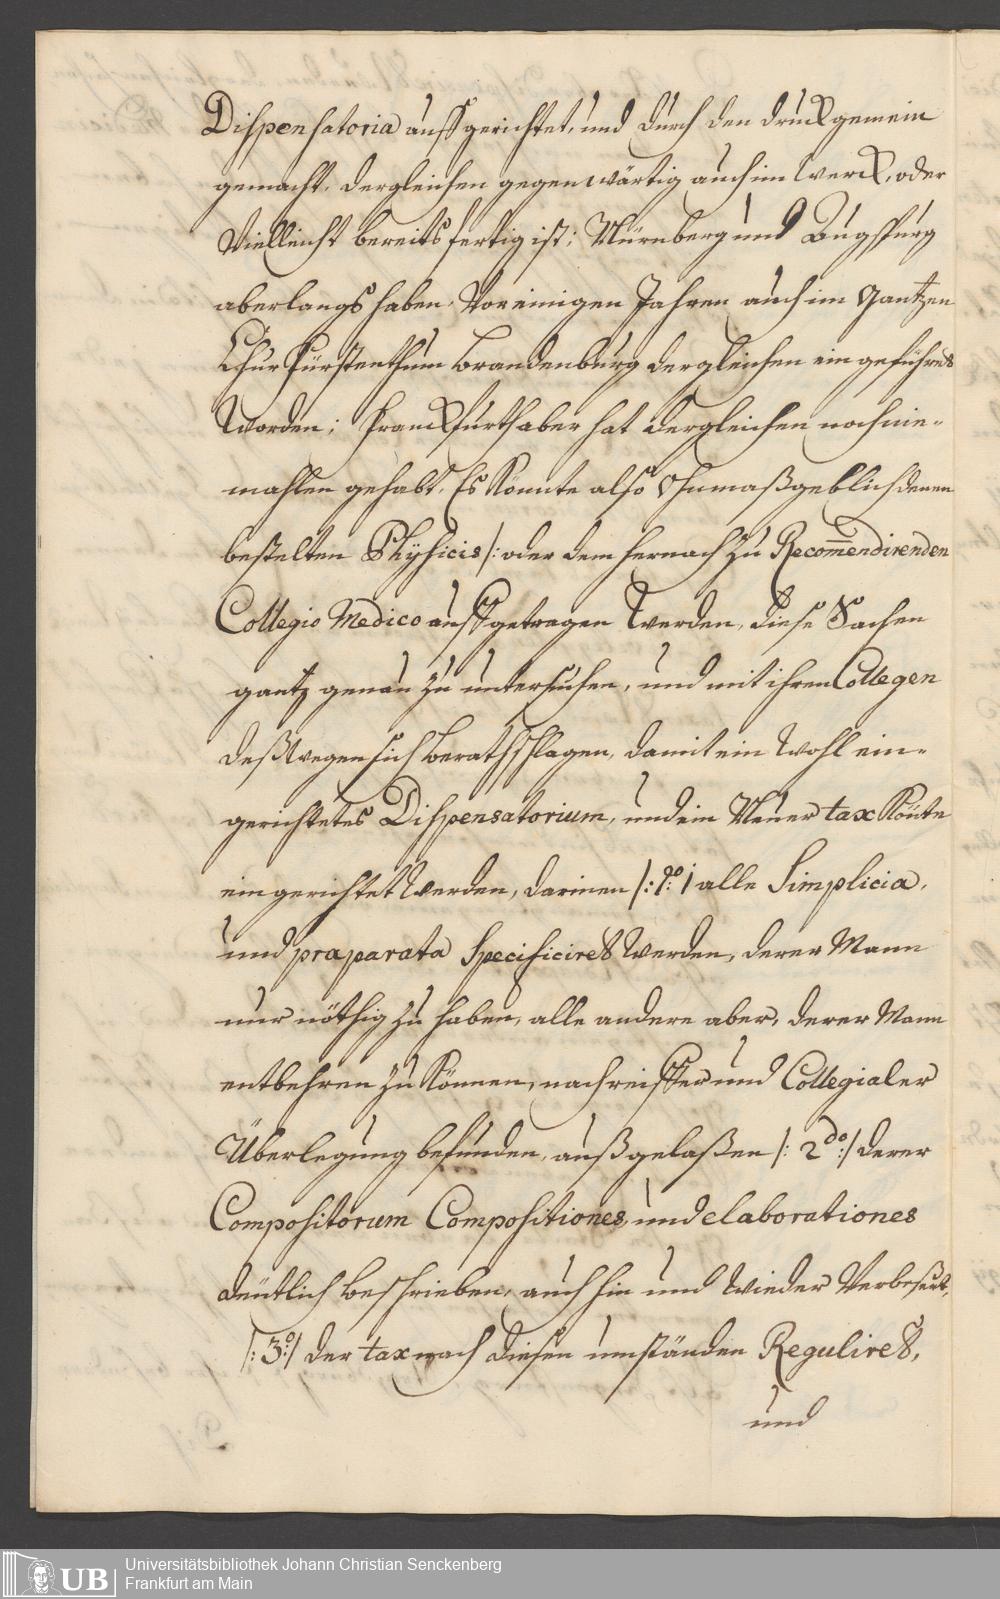 Dispensatoria auffgerichtet, und durch den druck gemein
gemacht, dergleichen gegenwärtig auch im werck, oder
vielleicht bereits fertig ist; Nürnberg und Augspurg
aber langs haben, vor einigen Jahren auch im Gantzen
ChurFürstenthum Brandenburg dergleichen eingeführet
worden; Franckfurth aber hat dergleichen noch nie-
mahlen gehabt. Es Könnte also Ohnmaßgeblich denen
bestelten Physicis /: oder dem hernach zu Recom̅endirenden
Collegio Medico auffgetragen werden, diese Sachen
gantz genau zu untersuchen, und mit ihren Collegen
deßwegen sich berathschlagen, damit ein wohl ein-
gerichtetes Dispensatorium, und ein Neuer tax Könte
eingerichtet werden, darinen /: 1º: / alle Simplicia,
und præparata Specificiret werden, derer Mann
nur nöthig zu haben, alle andere aber, derer Mann
entbehren zu Können, nach reiffer und Collegialer
Überlegung befunden, außgelaßen /: 2do :/ derer
Compositorum Compositiones, und elaborationes
deutlich beschrieben, auch hin und wieder verbeßert,
/: 3º :/ der tax nach diesen umständen Reguliret,
und
Universitätsbibliothek Johann Christian Senckenberg
Frankfurt am Main
UB